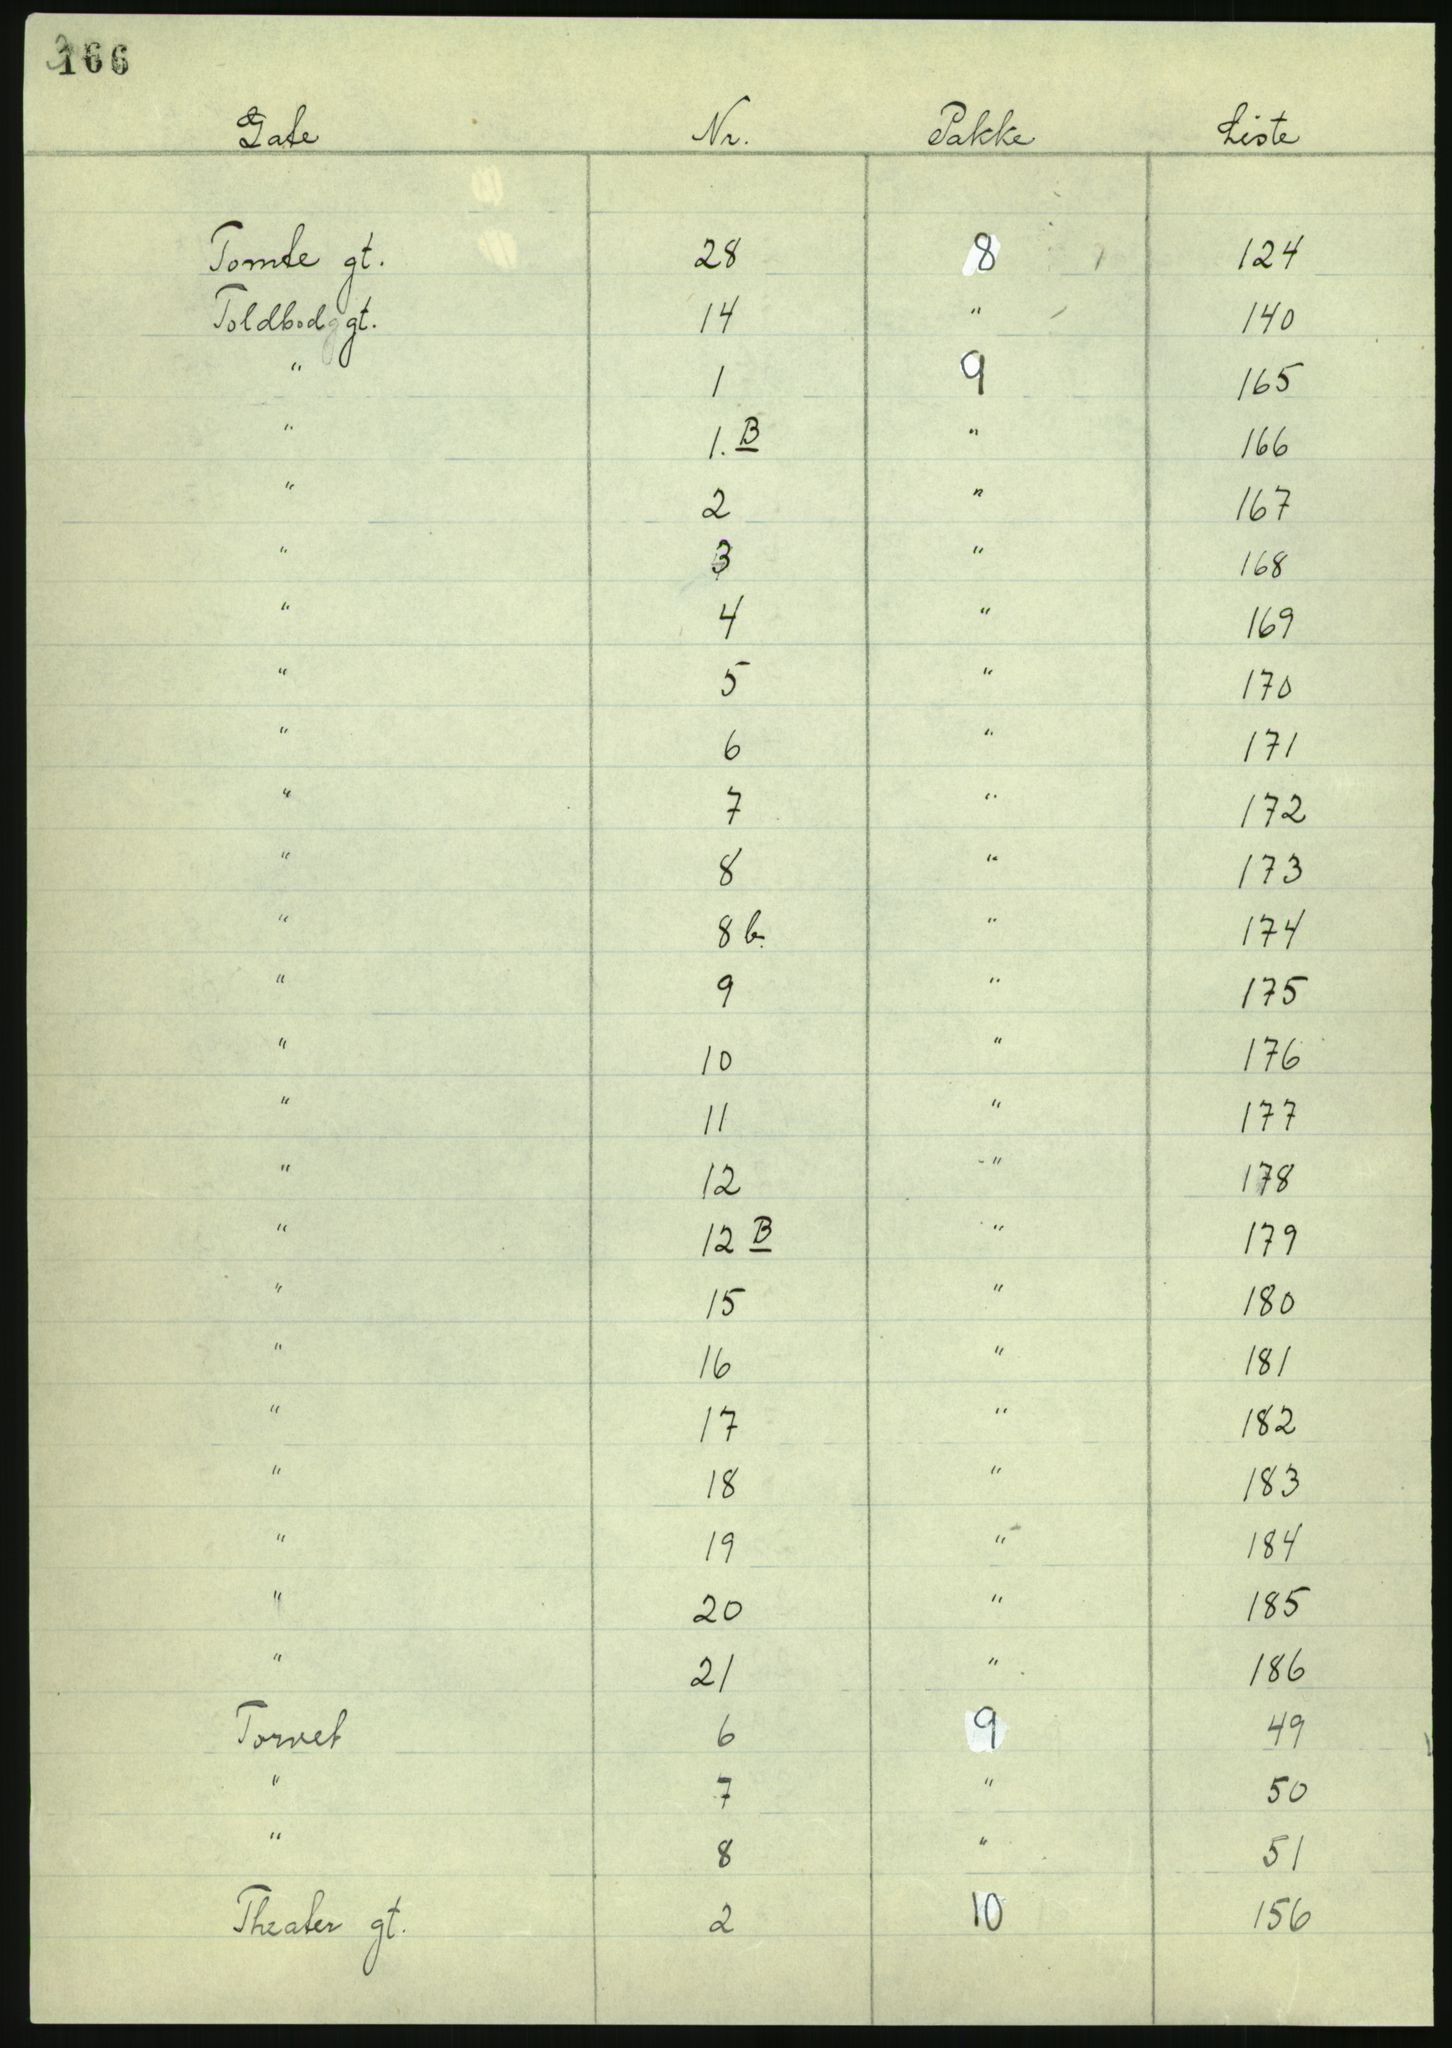 166
Gate Nr. Pakke Liste
Tomte gt. 28 8 124
Toldbodggt. 14 " 140
" 1 9 165
" 1. B " 166
" 2 " 167
" 3 " 168
" 4 " 169
" 5 " 170
" 6 " 171
" 7 " 172
" 8 " 173
" 8 b. " 174
" 9 " 175
" 10 " 176
" 11 " 177
" 12 " 178
" 12 B " 179
" 15 " 180
" 16 " 181
" 17 " 182
" 18 " 183
" 19 " 184
" 20 " 185
" 21 " 186
Torvet 6 9 49
" 7 " 50
" 8 " 51
Theater gt. 2 10 156